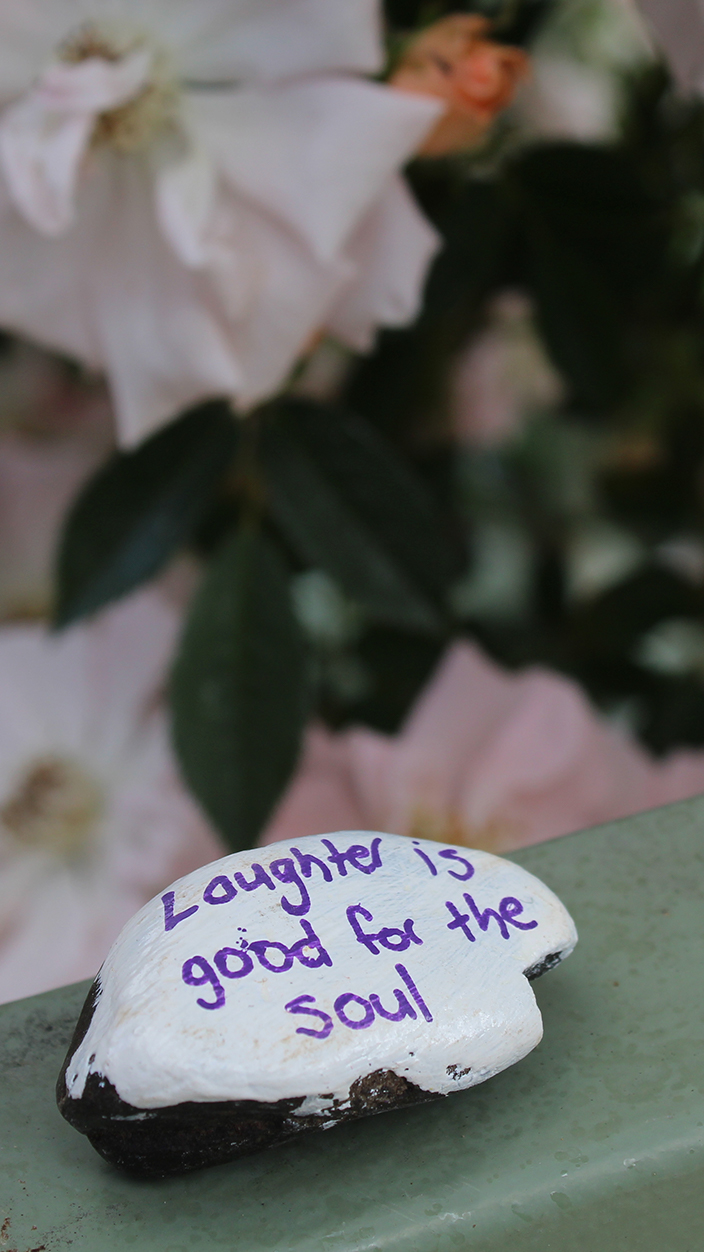 Laughter is
good for the
soul